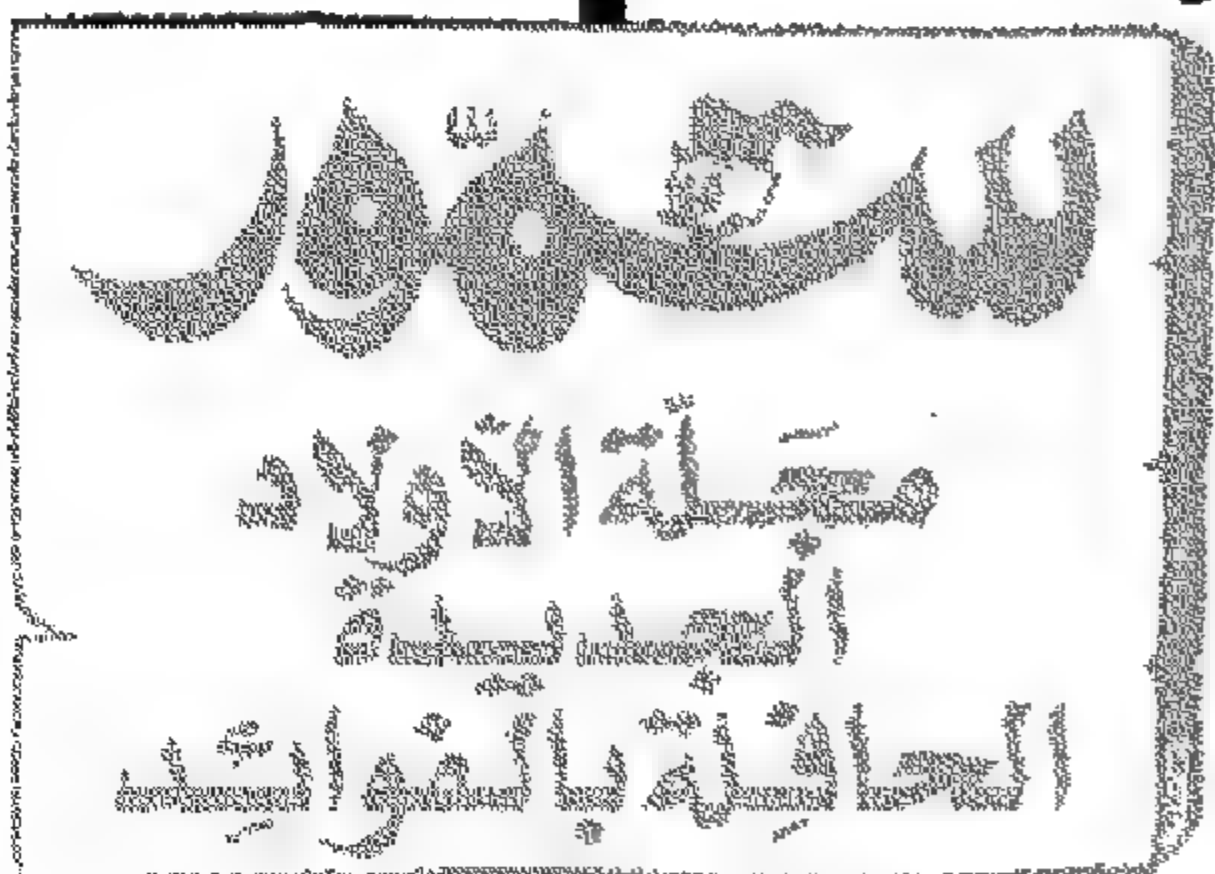 سنفور
مَجَلّة الأولاد
الجديدة
الحافِلة بالفوائِد